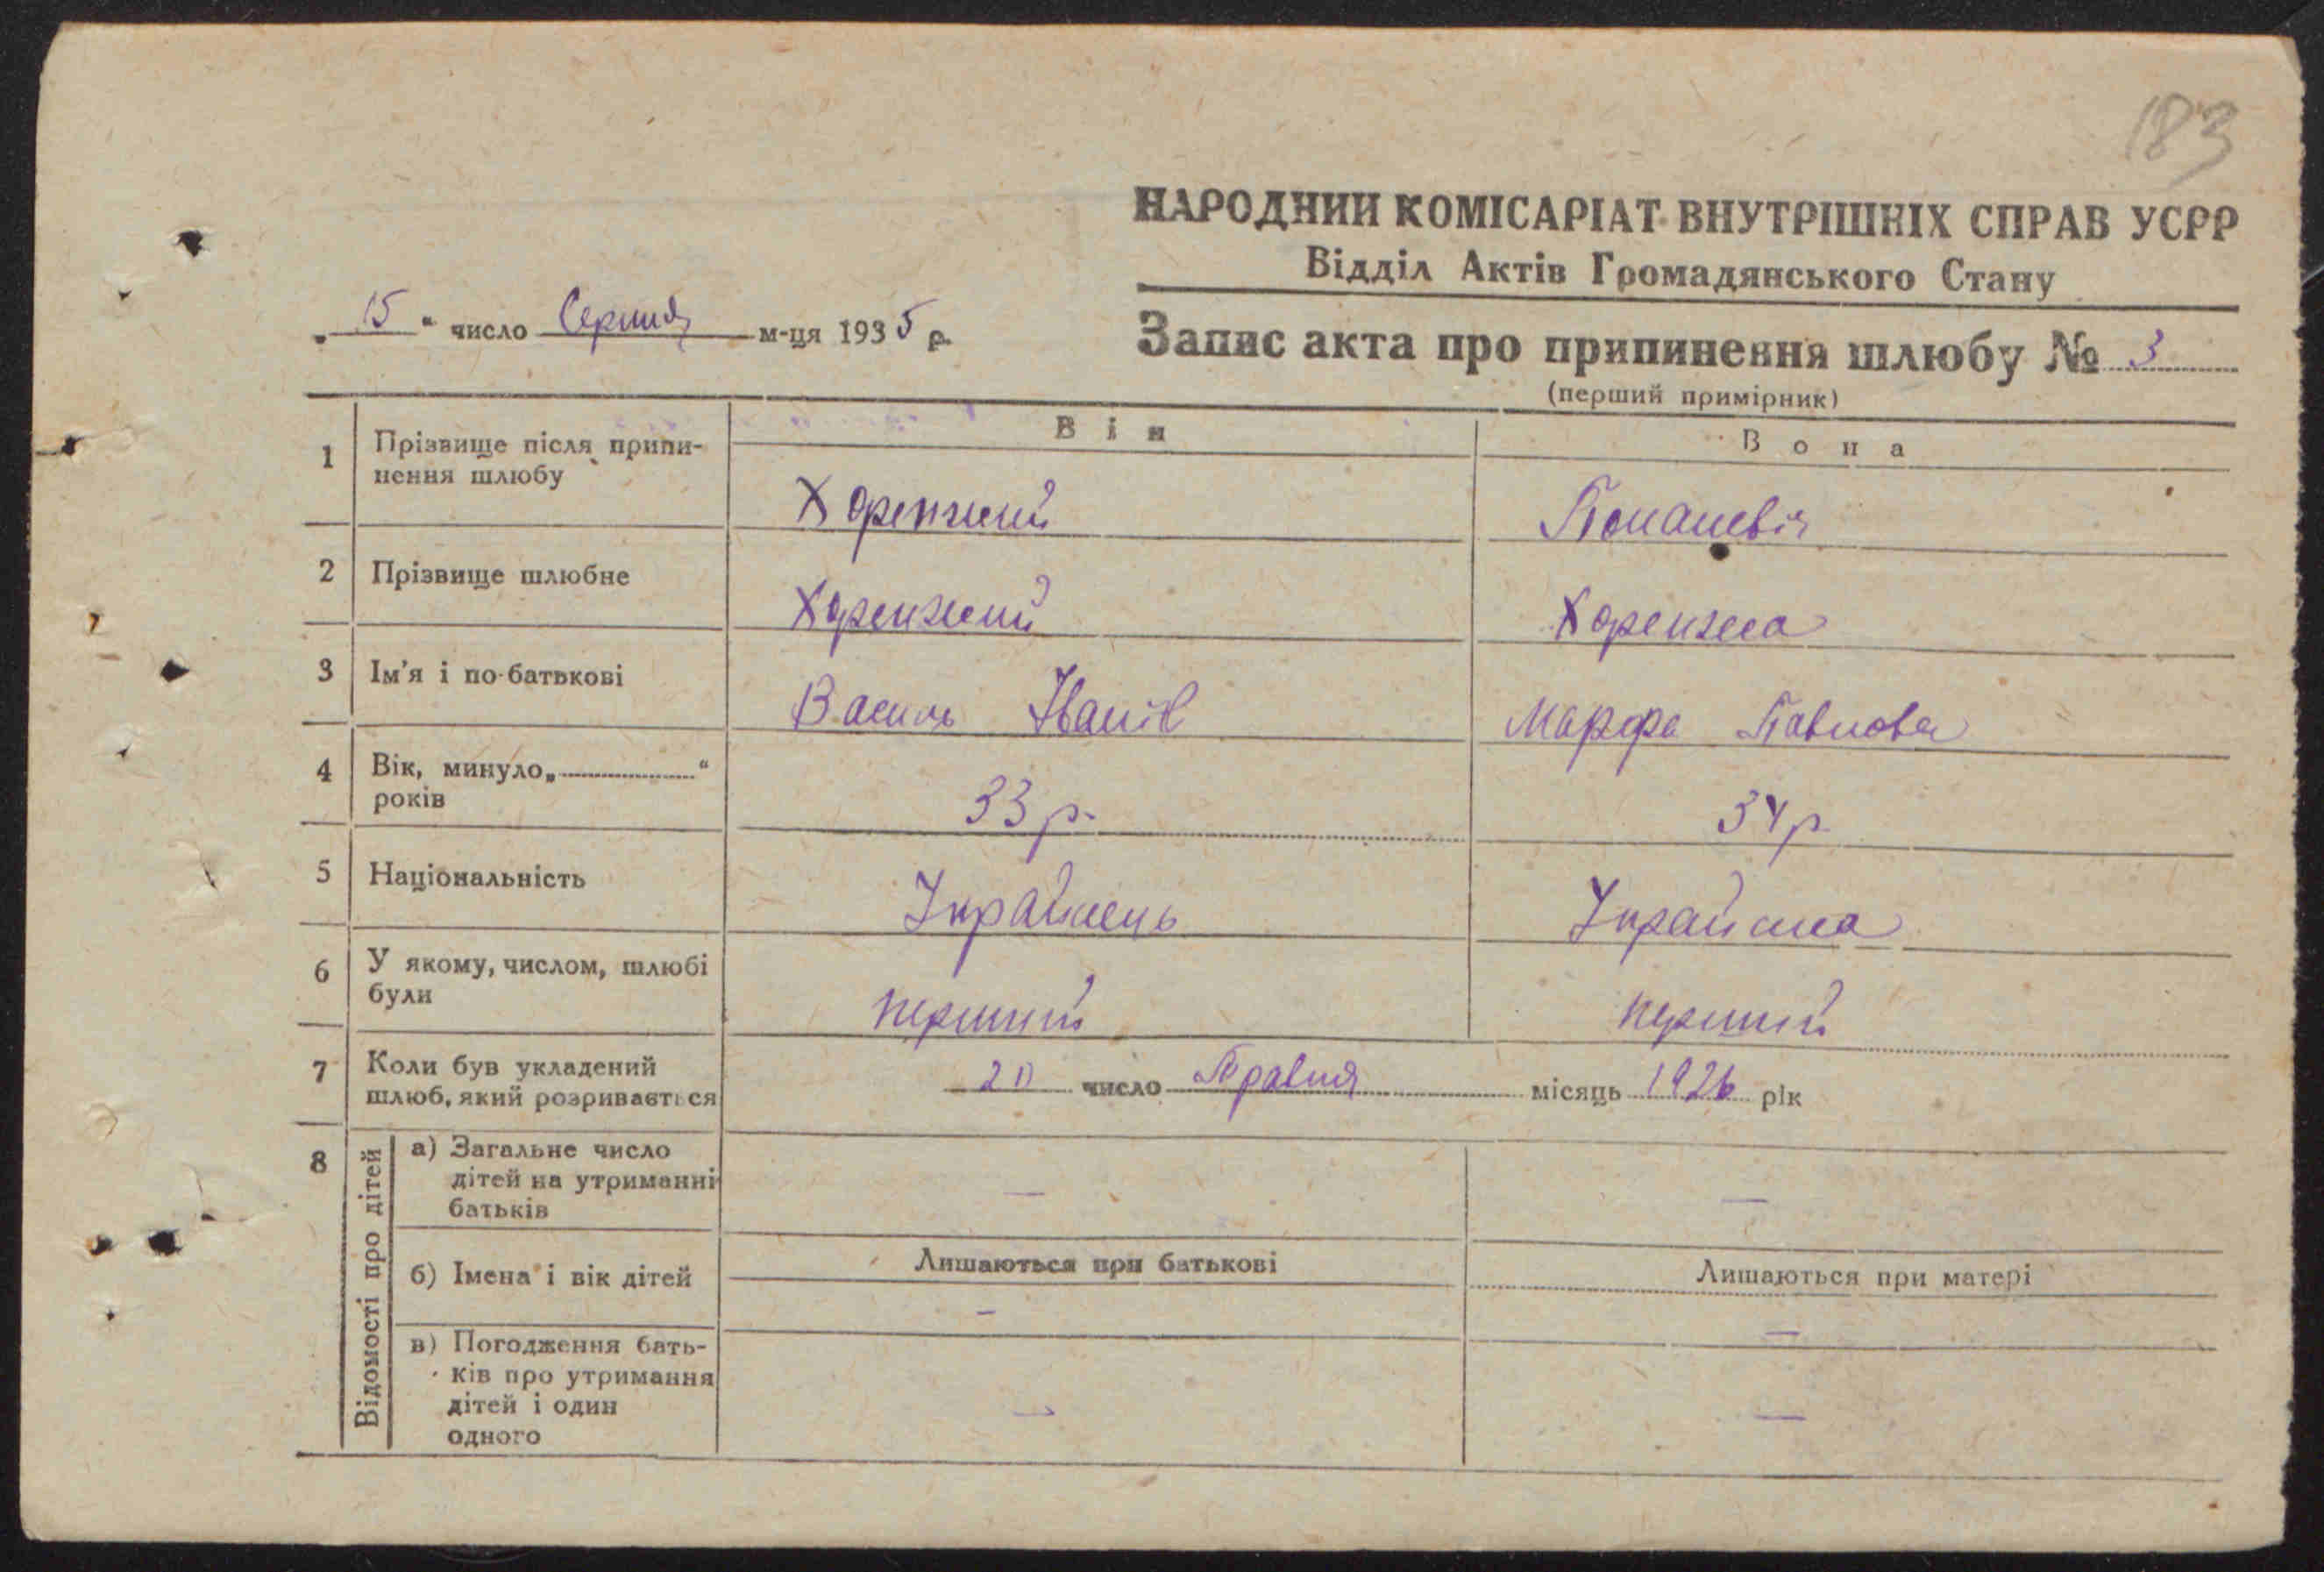 183
НАРОДНИЙ КОМІСАРІАТ ВНУТРІШНІХ СПРАВ УСРР
Відділ Актів Громадянського Стану
„ 15 “ число Серпня м-ця 1935 р.
Запис акта про припинення шлюбу № 3
(перший примірник)
Він
Вона
1 Прізвище після припи-
нення шлюбу
2 Прізвище шлюбне
3 Ім'я і по-батькові
Василь Іванів
Марфа Павлова
4 Вік, минуло „ “
років
33 р.
34 р.
5 Національність
Українець
Українка
6 У якому, числом, шлюбі
були
перший
перший
7 Коли був укладений
шлюб, який розривається
20 число Травня місяць 1926 рік
8 Відомості про дітей
а) Загальне число
дітей на утриманні
батьків
—
—
б) Імена і вік дітей
Лишаються при батькові
Лишаються при матері
—
—
в) Погодження бать-
ків про утримання
дітей і один
одного
—
—